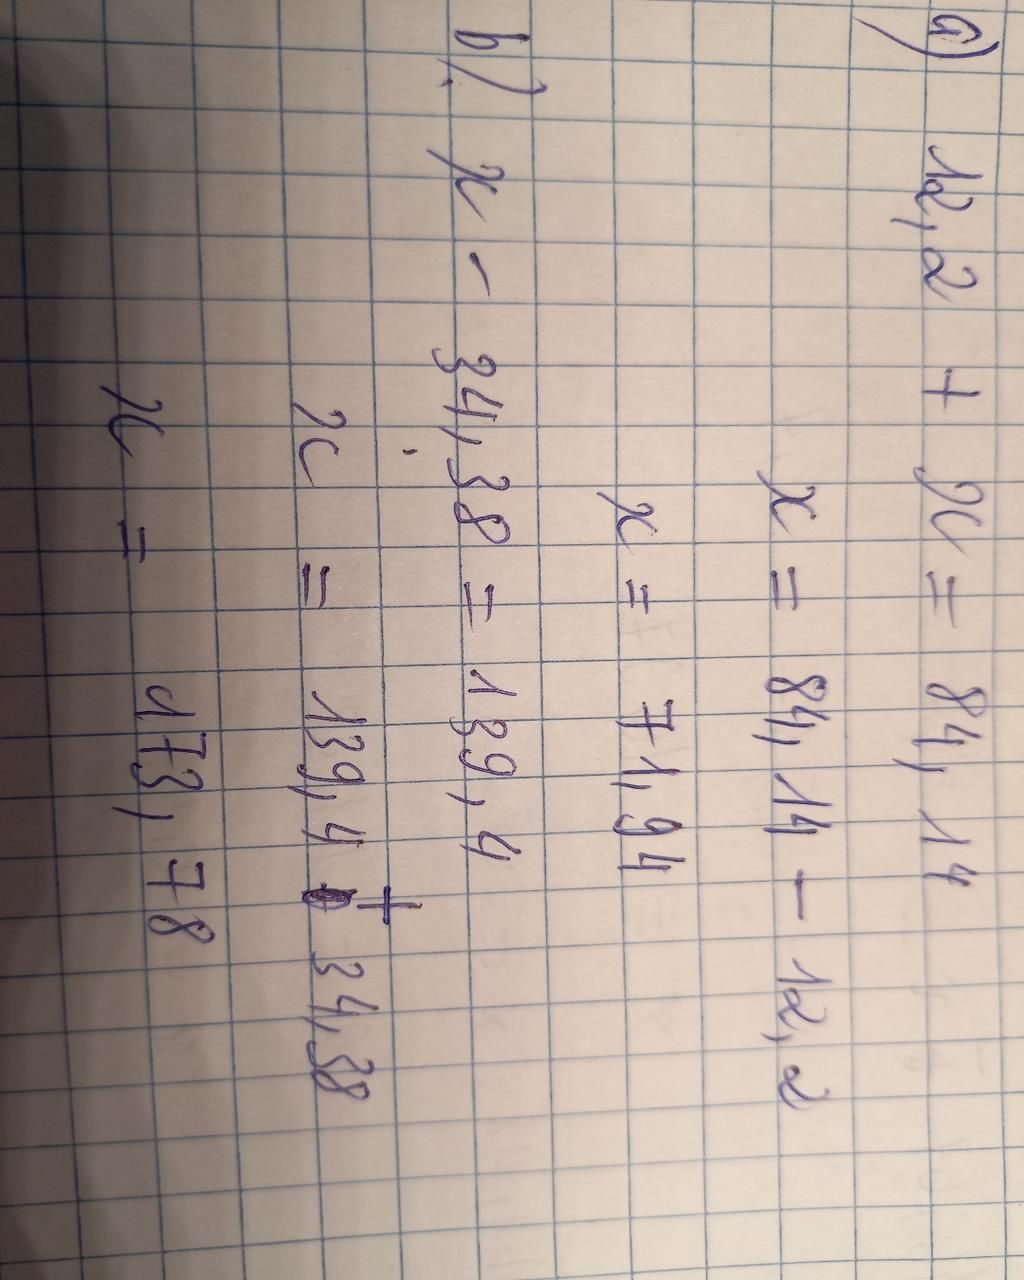 a) 12,2 + x = 84,14
x = 84,14 - 12,2
x = 71,94
b) x - 34,38 = 139,4
x = 139,4 + 34,38
x = 173,78